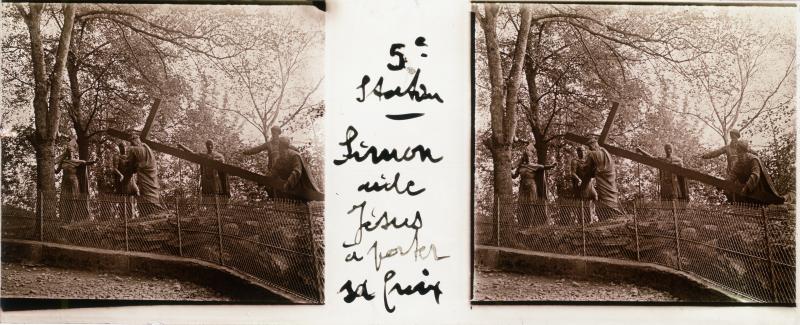 5e
Station
Simon
aide
Jésus
à porter
sa Croix